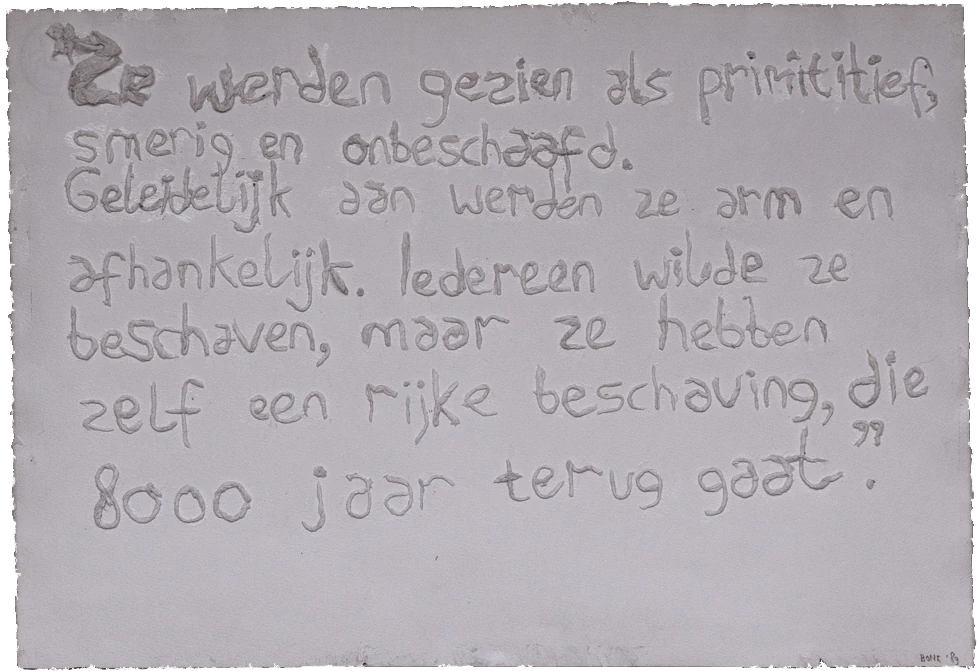 “Ze werden gezien als primititief,
smerig en onbeschaafd.
Geleidelijk aan werden ze arm en
afhankelijk. Iedereen wilde ze
beschaven, maar ze hebben
zelf een rijke beschaving, die
8000 jaar terug gaat”.